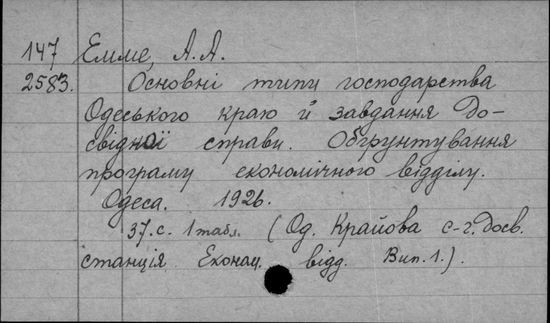 147 Емме, А.А.
2583. Основні типи господарства
Одеського краю й завдання до-
свідної справи. Обґрунтування
програму економічного відділу.
Одеса. 1926.
37.с. 1 табл. (Од. Крайова с-г. досв.
станція. Еконац. відд. Вип. 1.).